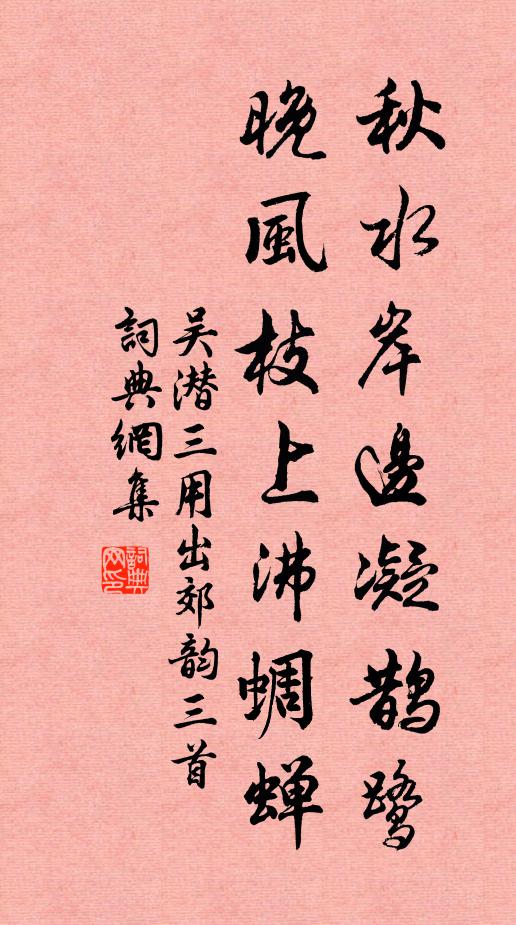 秋水岸邊凝鵲鷺
晚風枝上沸蜩蝉
吴潜三用出郊韵三首
詞典網集
詞典网印